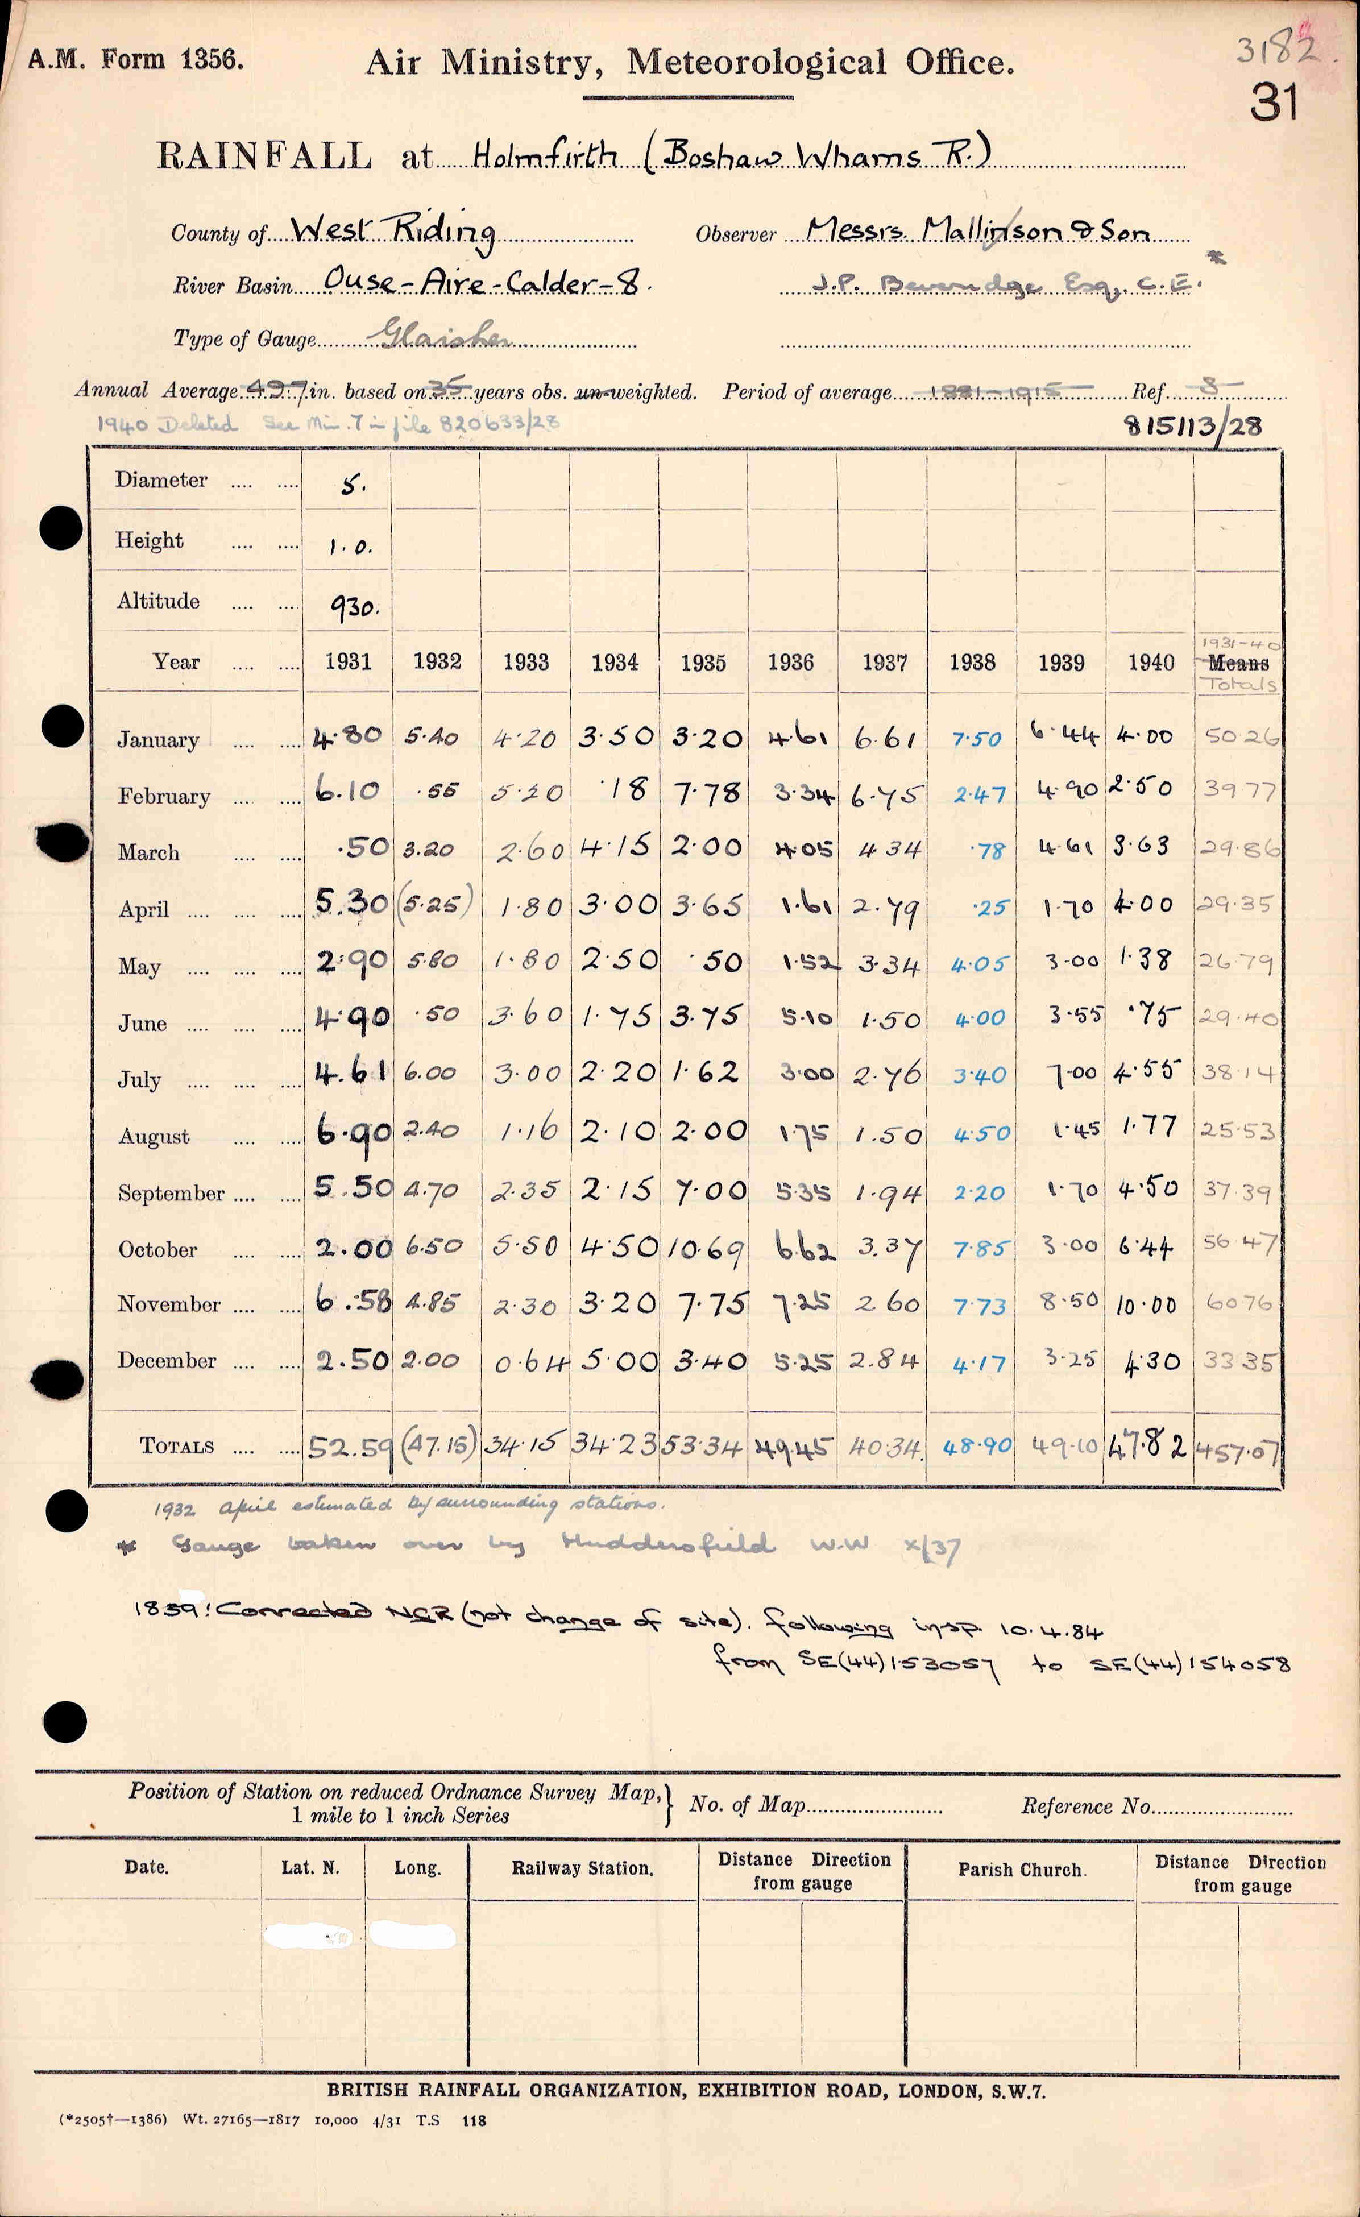 A.M. Form 1356.
Air Ministry, Meteorological Office.
3182.
31
RAINFALL at Holmfirth (Boshaw Whams R.)
County of West Riding Observer Messrs. Mallinson & Son
River Basin Ouse-Aire-Calder-8. J.P. Beveridge Esq, C.E. *
Type of Gauge Glaisher
Annual Average 49.7 in. based on 35 years obs. un-weighted. Period of average 1881-1915 Ref. 8
1940 Deleted See Min. 7 in file 820633/28 815113/28
Diameter .... .... 5.
Height .... .... 1.0.
Altitude .... .... 930.
Year .... .... 1931 1932 1933 1934 1935 1936 1937 1938 1939 1940 1931-40 Means Totals
January .... .... 4.80 5.40 4.20 3.50 3.20 4.61 6.61 7.50 6.44 4.00 50.26
February .... .... 6.10 .55 5.20 .18 7.78 3.34 6.75 2.47 4.90 2.50 39.77
March .... .... .50 3.20 2.60 4.15 2.00 4.05 4.34 .78 4.61 3.63 29.86
April .... .... .... 5.30 (5.25) 1.80 3.00 3.65 1.61 2.79 .25 1.70 4.00 29.35
May .... .... .... 2.90 5.80 1.80 2.50 .50 1.52 3.34 4.05 3.00 1.38 26.79
June .... .... .... 4.90 .50 3.60 1.75 3.75 5.10 1.50 4.00 3.55 .75 29.40
July .... .... .... 4.61 6.00 3.00 2.20 1.62 3.00 2.76 3.40 7.00 4.55 38.14
August .... .... 6.90 2.40 1.16 2.10 2.00 1.75 1.50 4.50 1.45 1.77 25.53
September .... .... 5.50 4.70 2.35 2.15 7.00 5.35 1.94 2.20 1.70 4.50 37.39
October .... .... 2.00 6.50 5.50 4.50 10.69 6.62 3.37 7.85 3.00 6.44 56.47
November .... .... 6.58 4.85 2.30 3.20 7.75 7.25 2.60 7.73 8.50 10.00 60.76
December .... .... 2.50 2.00 0.64 5.00 3.40 5.25 2.84 4.17 3.25 4.30 33.35
TOTALS .... .... 52.59 (47.15) 34.15 34.23 53.34 49.45 40.34 48.90 49.10 47.82 457.07
1932 April estimated by surrounding stations.
* Gauge taken over by Huddersfield W.W X/37
1859: Corrected NGR (not change of site). following insp. 10.4.84
from SE(44)153057 to SE(44)154058
Position of Station on reduced Ordnance Survey Map, } No. of Map Reference No.
1 mile to 1 inch Series
Date. Lat. N. Long. Railway Station. Distance Direction from gauge Parish Church. Distance Direction from gauge
BRITISH RAINFALL ORGANIZATION, EXHIBITION ROAD, LONDON, S.W.7.
(*2505†—1386) Wt. 27165—1817 10,000 4/31 T.S 118